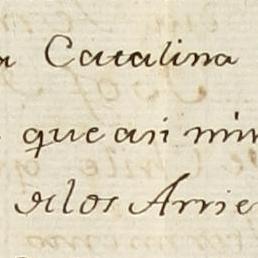 a Catalina
que asi min
delos Arrie